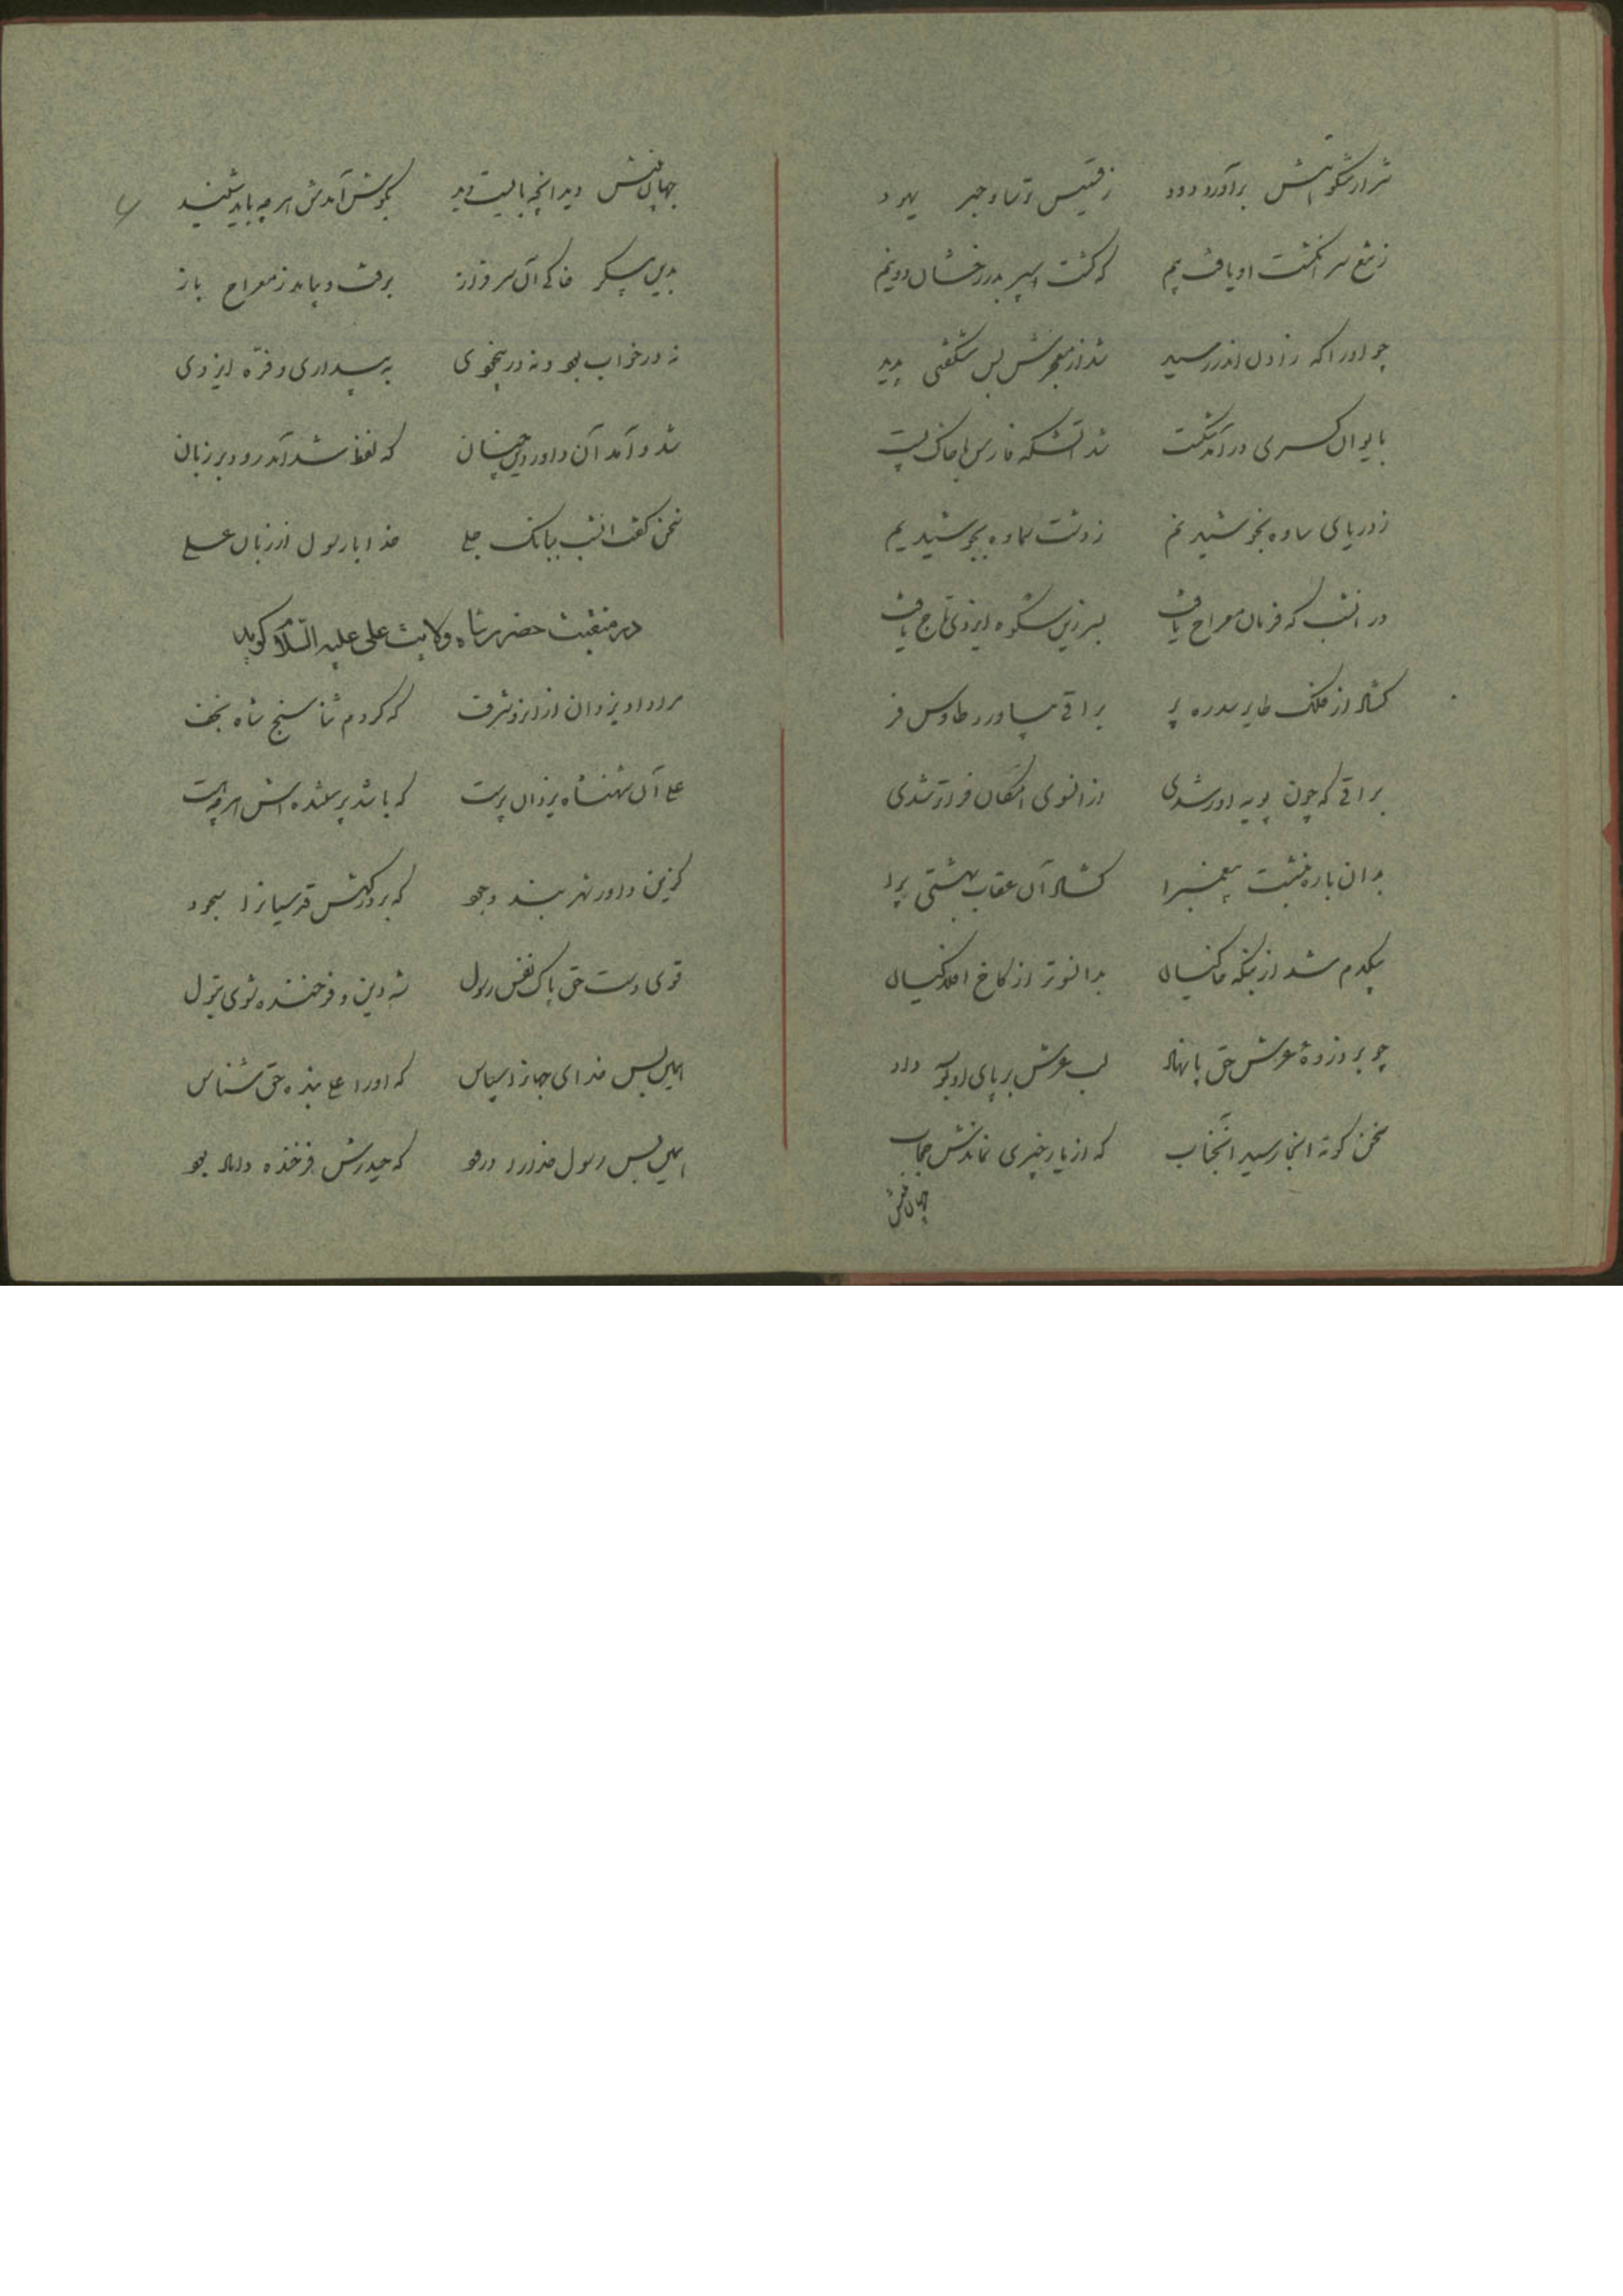 شرار شکوهش برآورد دود ز قسیس و ترسا و حبر یهود
ز تیغ سر انگشت او یافت بیم که گشت سپر بدر رخشان دو نیم
چو او را که زادن اندر رسید شد از معجزش بس شگفتی پدید
بایوان کسری در آمد شکست شد آتشکه فارس با خاک پست
ز دریای ساوه بخوشید نم ز دشت سماوه بجوشید یم
در آنشب که فرمان معراج یافت بسر زین شکوه ایزدی تاج یافت
گشاد از فلک طایر سدره پر براقی بیاورد طاوس فر
براقی که چون پویه آور شدی از آنسوی امکان فراتر شدی
بدان باره بنشست پیغمبرا گشاد آن عقاب بهشتی پرا
بیکدم شد از بنگه خاکیان بدانسوتر از کاخ افلاکیان
چو بر ذروهٔ عرش حق پا نهاد لب عرش بر پای او بوسه داد
سخن کوته آنجا رسید آنجناب که از یار چیزی نماندش حجاب
جهان بینش
جهان بینش دید آنچه بایست دید بگوش آمدش هر چه باید شنید
بدین پیکر خاکی آن سرفراز برفت و بیامد ز معراج باز
نه در خواب بود و نه در بیخودی به بیداری و فرّه ایزدی
شد و آمد آن داور دین چنان که لفظ شد آمد رود بر زبان
سخن گفت آنشب ببانک جلی خدا با رسول از زبان علی
در منقبت حضرت شاه ولایت علی علیه السّلام گوید
مرا داد یزدان از آنرو شرف که کردم ثنا سنج شاه نجف
علی آن شهنشاه یزدان پرست که باشد پرستنده اش هر چه هست
گزین داور نهر بند وجود که بر درگهش قدسیانرا سجود
قوی دست حق پاک نفس رسول شه دین و فرخنده شوی بتول
همین بس خدای جهانرا سپاس که او را علی بنده حق شناس
همین بس رسول خدا را درود که حیدرش فرخنده داماد بود